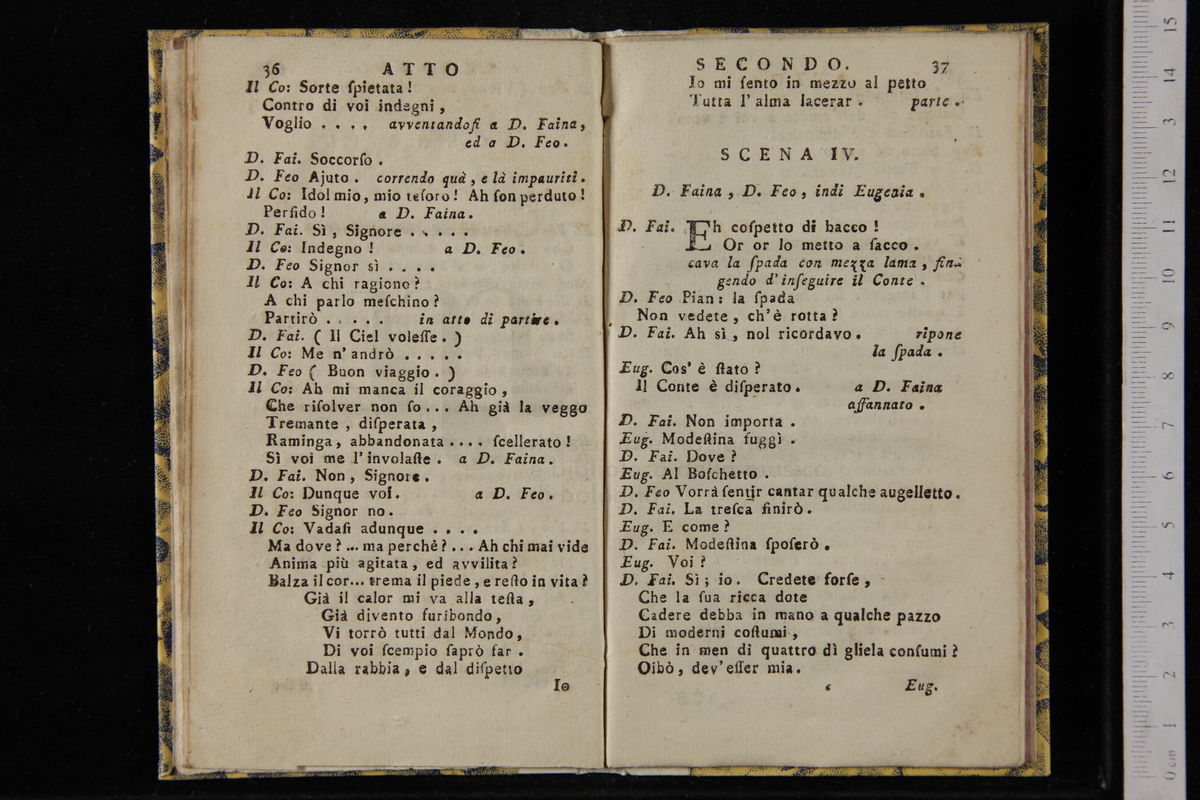 36 ATTO
Il Co: Sorte ſpietata !
Contro di voi indegni ,
Voglio . . . . avventandoſi a D. Faina,
ed a D. Feo.
D. Fai. Soccorſo .
D. Feo Ajuto . correndo quà , e là impauriti .
Il Co: Idol mio, mio teſoro ! Ah ſon perduto !
Perfido ! a D. Faina.
D. Fai. Sì , Signore . . . . .
Il Co: Indegno ! a D. Feo.
D. Feo Signor sì . . . .
Il Co: A chi ragiono ?
A chi parlo meſchino ?
Partirò . . . . . in atto di partire.
D. Fai. ( Il Ciel voleſſe . )
Il Co: Me n' andrò . . . . .
D. Feo ( Buon viaggio . )
Il Co: Ah mi manca il coraggio ,
Che riſolver non ſo . . . Ah già la veggo
Tremante , diſperata ,
Raminga, abbandonata . . . . ſcellerato !
Sì voi me l'involaſte . a D. Faina.
D. Fai. Non, Signore.
Il Co: Dunque voi. a D. Feo.
D. Feo Signor no.
Il Co: Vadaſi adunque . . . .
Ma dove ? ... ma perchè ? . . . Ah chi mai vide
Anima più agitata , ed avvilita ?
Balza il cor... trema il piede , e reſto in vita ?
Già il calor mi va alla teſta ,
Già divento furibondo ,
Vi torrò tutti dal Mondo ,
Di voi ſcempio ſaprò far .
Dalla rabbia , e dal diſpetto
Io
SECONDO. 37
Io mi ſento in mezzo al petto
Tutta l' alma lacerar . parte .
SCENA IV.
D. Faina , D. Feo , indi Eugenia .
D. Fai. Eh coſpetto di bacco !
Or or lo metto a ſacco .
cava la ſpada con mezza lama , fin-
gendo d' inſeguire il Conte .
D. Feo Pian : la ſpada
Non vedete , ch'è rotta ?
D. Fai. Ah sì , nol ricordavo . ripone
la ſpada .
Eug. Cos' è ſtato ?
Il Conte è diſperato . a D. Faina
affannato .
D. Fai. Non importa .
Eug. Modeſtina fuggì .
D. Fai. Dove ?
Eug. Al Boſchetto .
D. Feo Vorrà ſentir cantar qualche augelletto.
D. Fai. La treſca finirò .
Eug. E come ?
D. Fai. Modeſtina ſpoſerò .
Eug. Voi ?
D. Fai. Sì ; io. Credete forſe ,
Che la ſua ricca dote
Cadere debba in mano a qualche pazzo
Di moderni coſtumi ,
Che in men di quattro dì gliela conſumi ?
Oibò, dev' eſſer mia.
Eug.
0 cm 1 2 3 4 5 6 7 8 9 10 11 12 13 14 15